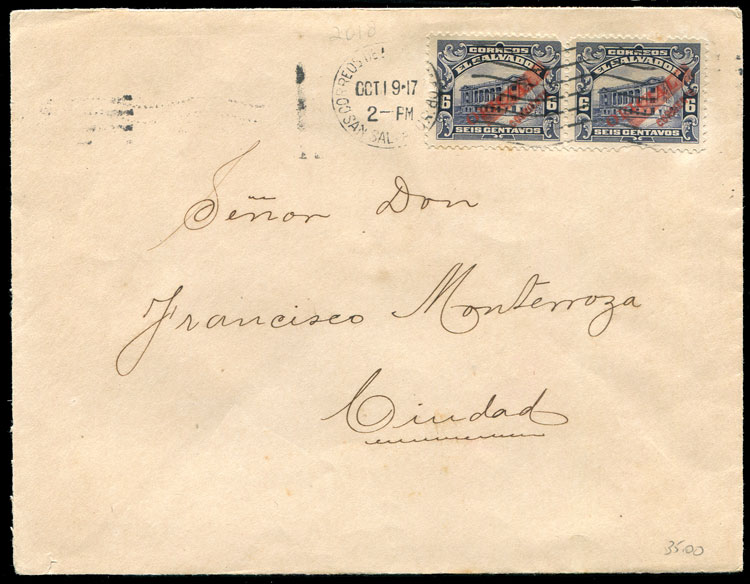 2010
CORREOS DE
OCT 19·17
2-PM
SAN SAL
CORREOS
EL SALVADOR
6 6
SEIS CENTAVOS
CORREOS
EL SALVADOR
6 6
SEIS CENTAVOS
Señor Don
Francisco Monterroza
Ciudad
35.00